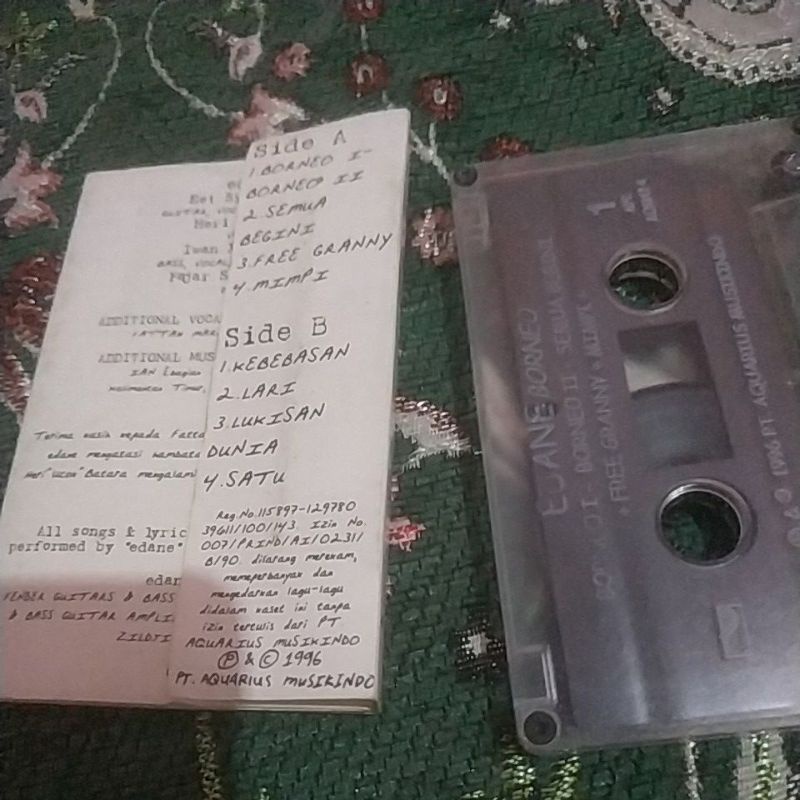 Side A
1. BORNEO I-
BORNEO II
2. SEMUA
BEGINI
3. FREE GRANNY
4. MIMPI
Side B
1. KEBEBASAN
2. LARI
3. LUKISAN
DUNIA
4. SATU
Reg.No.115897-129780
39611/100/143. Izin No.
007/PRIND/AI/0231/
8/90. dilarang merekam,
memperbanyak dan
mengedarkan lagu-lagu
didalam kaset ini tanpa
izin tertulis dari PT
AQUARIUS MUSIKINDO
Ⓟ & © 1996
PT. AQUARIUS MUSIKINDO
Iwan
BASS, VOCAL
Fajar S
ADDITIONAL VOCA
FATTAH MAR
ADDITIONAL MUS
Kalimantan Timur,
Terima kasih kepada Fatta
edane mengatasi hambata
Heri "Ucon" Batara mengalami
All songs & lyric
performed by "edane"
edan
FENDER GUITARS & BASS
& BASS GUITAR AMPLI
ZILDJI
1
EDANE BORNEO
BORNEO I - BORNEO II - SEMUA BEGINI
• FREE GRANNY - MIMPI •
Ⓟ & © 1996 PT. AQUARIUS MUSIKINDO